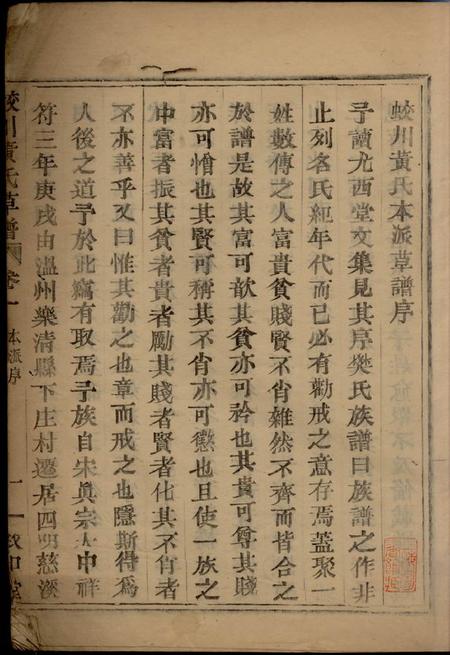 蛟川黃氏本派草譜序
予讀尤西堂文集見其序樊氏族譜曰族譜之作非
止列名氏紀年代而已必有勸戒之意存焉蓋聚一
姓數傳之人富貴貧賤賢不肖雜然不齊而皆合之
於譜是故其富可歆其貧亦可矜也其貴可尊其賤
亦可憎也其賢可稱其不肖亦可懲也且使一族之
中富者振其貧者貴者勵其賤者賢者化其不肖者
不亦善乎又曰惟其勸之也章而戒之也隱斯得爲
人後之道予於此竊有取焉予族自宋眞宗大中祥
符三年庚戌由溫州樂清縣下庄村遷居四明慈溪
蛟川黃氏草譜 卷一 本派序 一